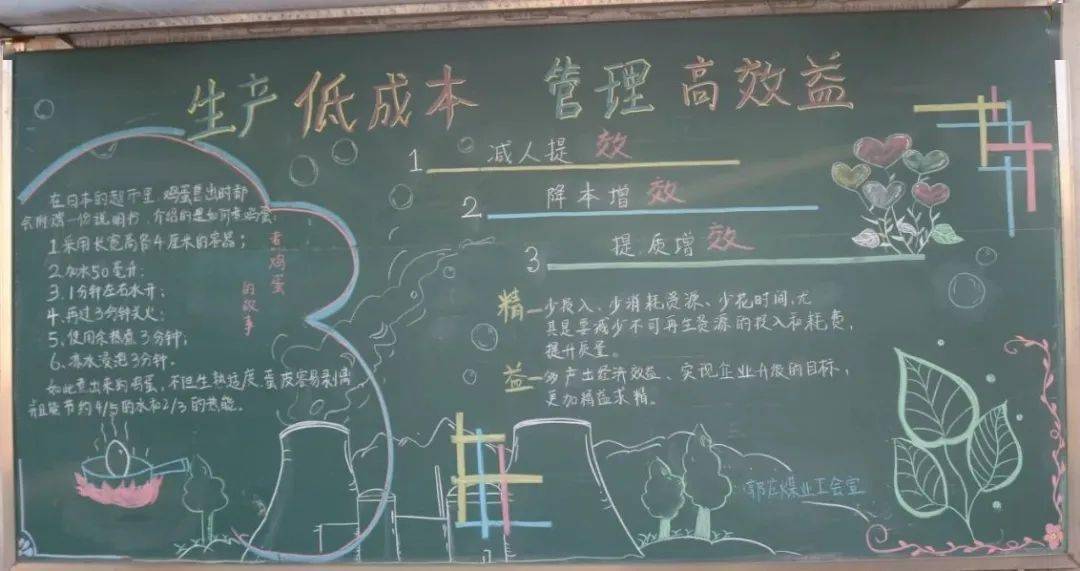 生产低成本 管理高效益
1 减人提效
2 降本增效
3 提质增效
在日本的超市里,鸡蛋售出时都
会附带一份说明书,介绍的是如何煮鸡蛋:
1.采用长宽高各4厘米的容器;
2.加水50毫升;
3.1分钟左右水开;
4.再过3分钟关火;
5.使用余热煮3分钟;
6.凉水浸泡3分钟。
如此煮出来的鸡蛋,不但生熟适度,蛋皮容易剥离
且能节约4/5的水和2/3的热能。
煮鸡蛋
的故事
精—少投入、少消耗资源、少花时间,尤
其是要减少不可再生资源的投入和耗费,
提升质量。
益—多产出经济效益、实现企业升级的目标,
更加精益求精。
郭庄煤业工会宣